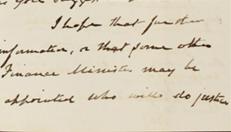 I hope that further
information, or that some other
Finance Minister may be
appointed who will do justice